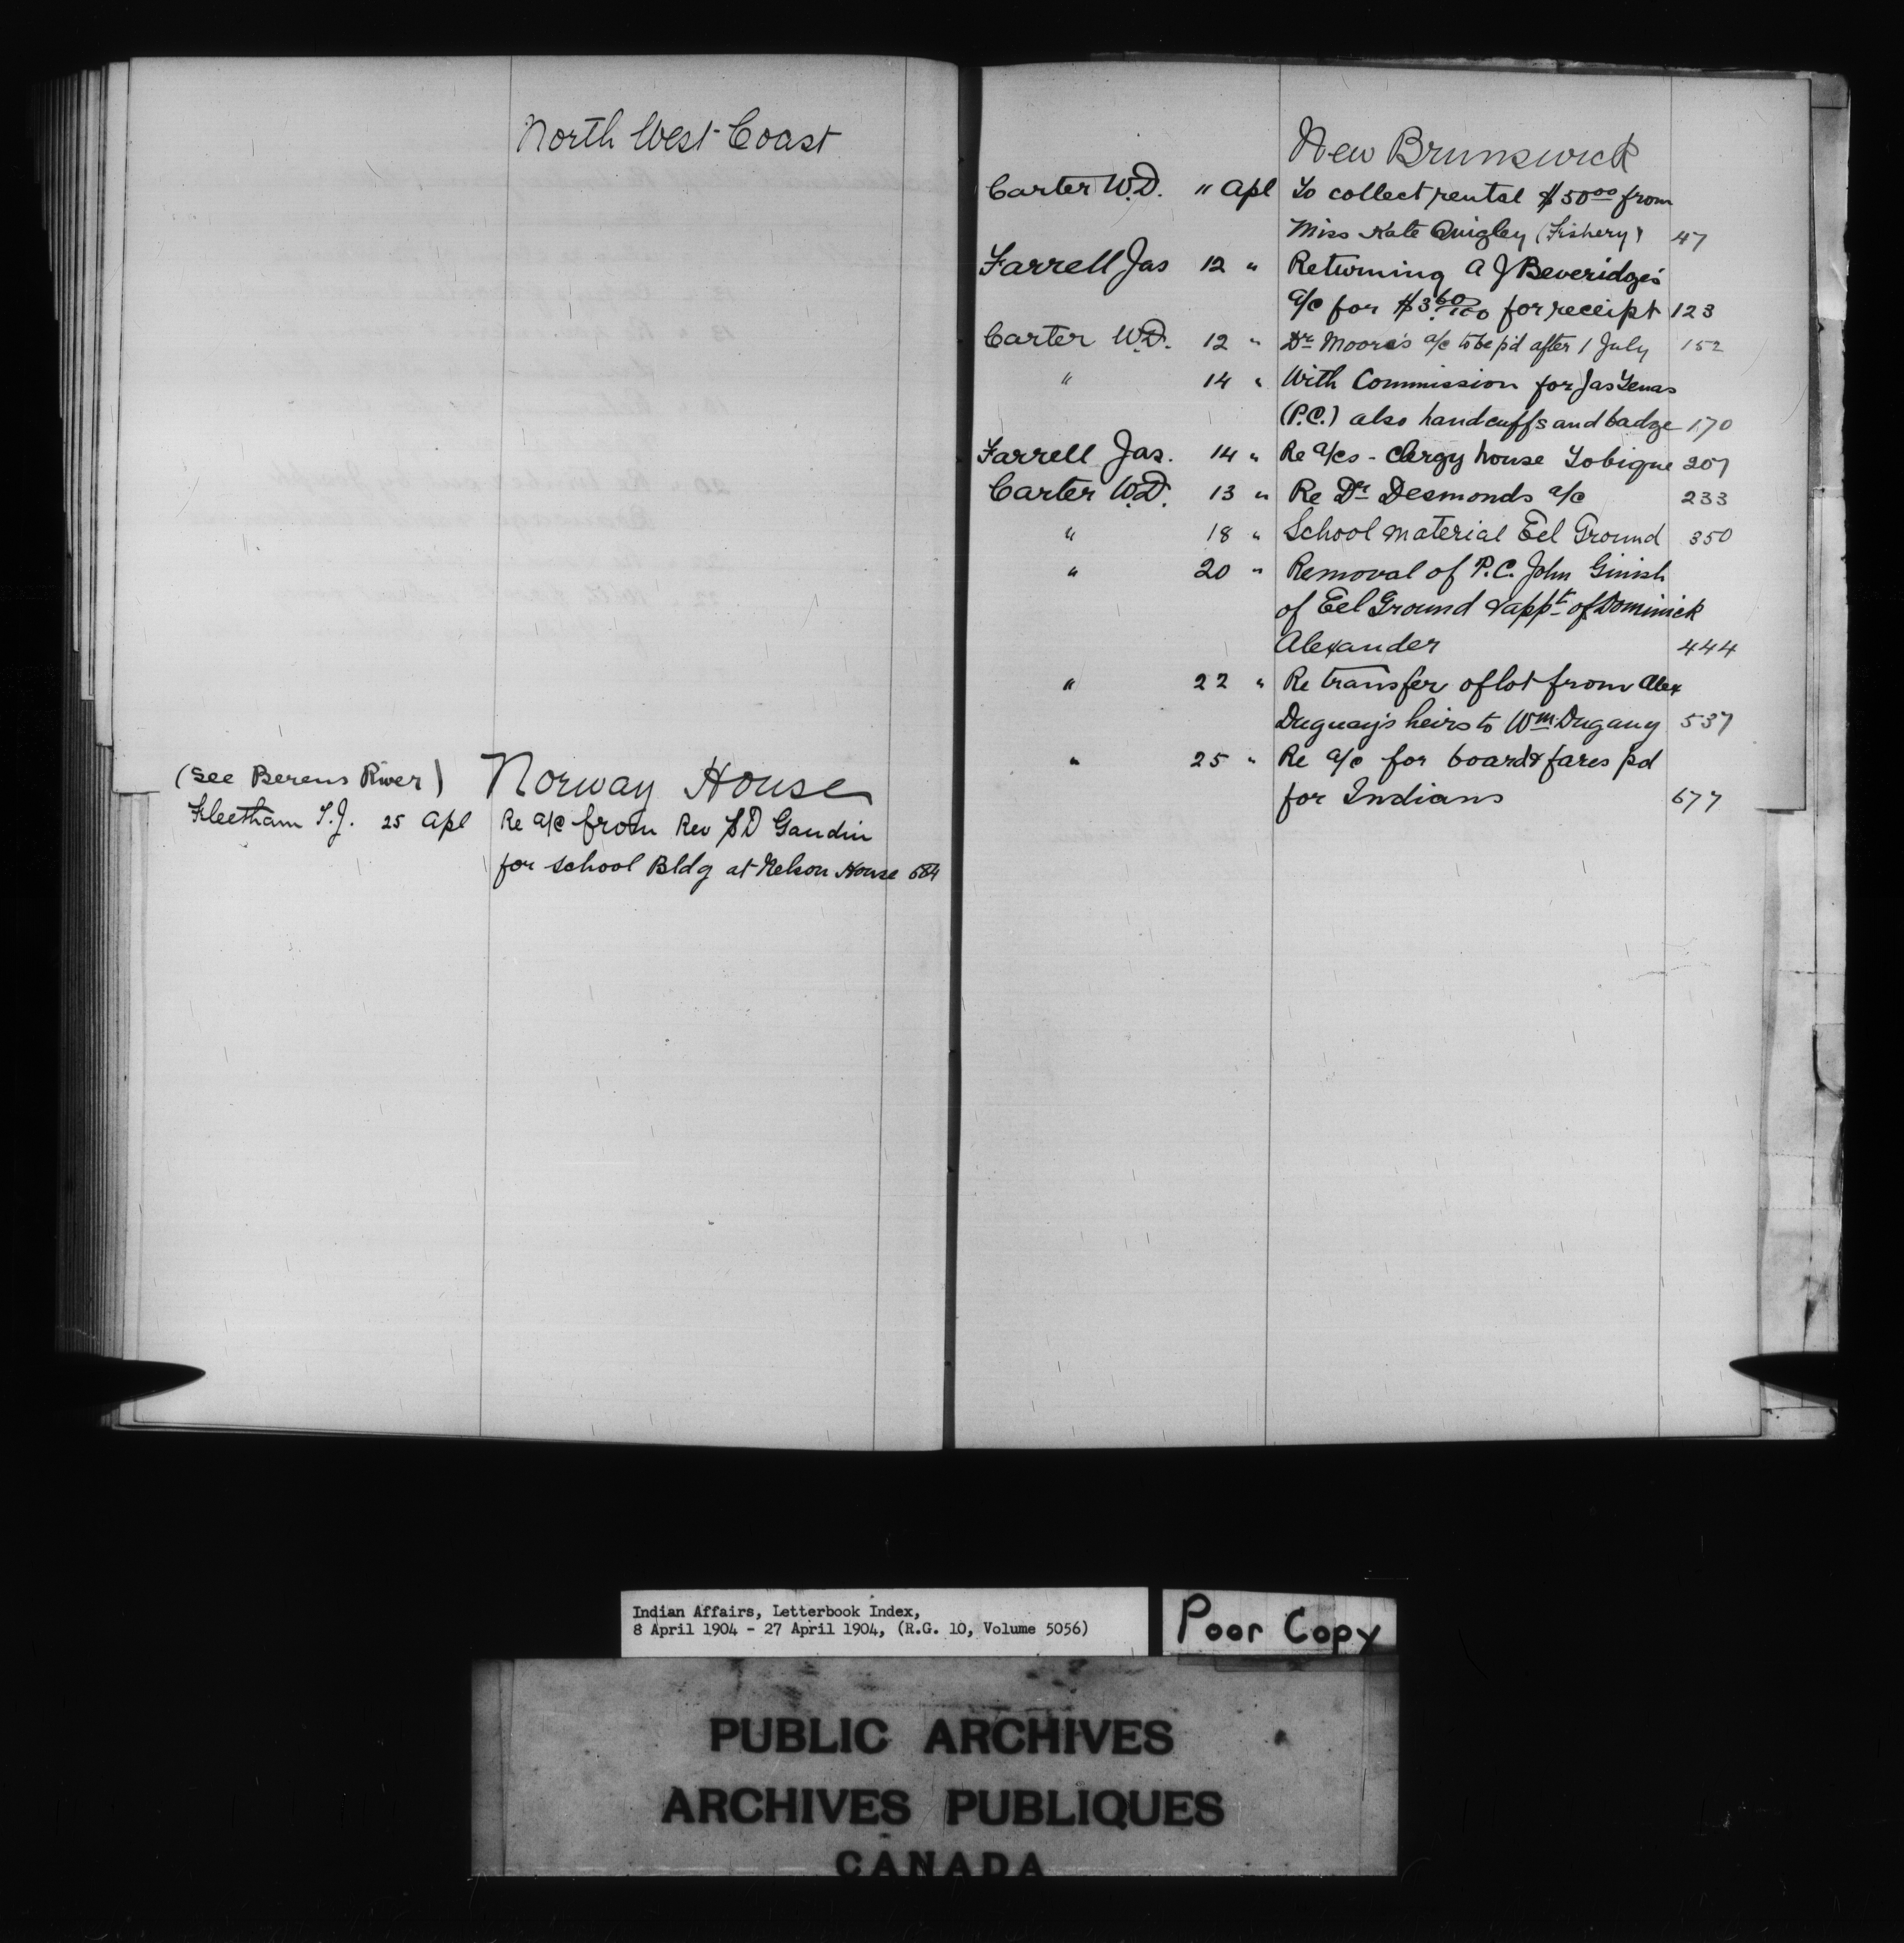 North West Coast
(see Berens River) Norway House
Fleetham T.J. 25 Apl Re a/c from Rev S D Gaudin
for school Bldg at Nelson House 684
New Brunswick
Carter W.D. " Apl To collect rental $50⁰⁰ from
Miss Kate Quigley (Fishery) 47
Farrell Jas 12 " Returning A J Beveridge's
a/c for $3.60/100 for receipt 123
Carter W.D. 12 " Dr Moore's a/c to be p'd after 1 July 152
" 14 " With Commission for Jas
(P.C.) also handcuffs and badge 170
Farrell Jas. 14 " Re a/cs - Clergy house Tobique 207
Carter W.D. 13 " Re Dr Desmonds a/c 233
" 18 " School material Eel Ground 350
" 20 " Removal of P.C. John Ginish
of Eel Ground & appt of Dominick
Alexander 444
" 22 " Re transfer of lot from Alex
Duguay's heirs to Wm Dugauy 537
" 25 " Re a/c for board & fares pd
for Indians 677
Indian Affairs, Letterbook Index,
8 April 1904 - 27 April 1904, (R.G. 10, Volume 5056)
Poor Copy
PUBLIC ARCHIVES
ARCHIVES PUBLIQUES
CANADA